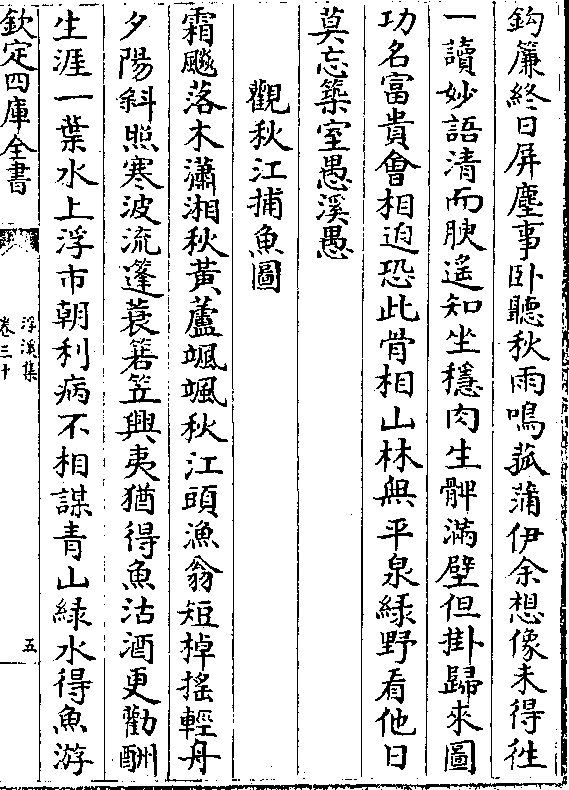 鈎簾終日屏塵事卧聽秋雨鳴菰蒲伊余想像未得徃
一讀妙語清而腴遥知坐穩肉生髀滿壁但掛歸來圖
功名富貴會相迫恐此骨相山林與平泉緑野看他日
莫忘築室愚溪愚
觀秋江捕魚圖
霜飈落木瀟湘秋黃蘆颯颯秋江頭漁翁短棹搖輕舟
夕陽斜照寒波流篷蓑箬笠興夷猶得魚沽酒更勸酬
生涯一葉水上浮市朝利病不相謀青山緑水得魚游
欽定四庫全書
浮溪集
卷三十
五